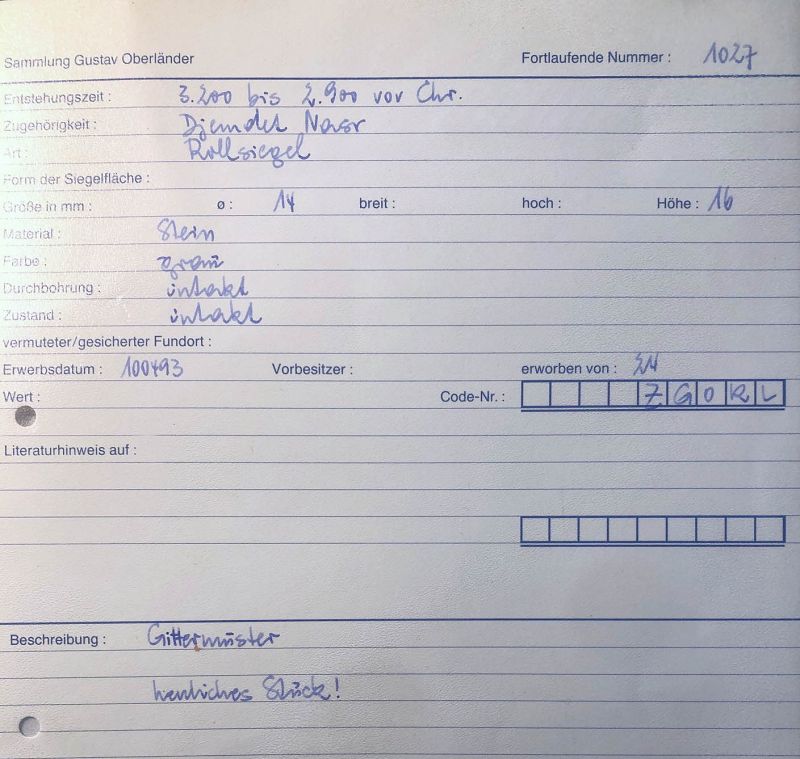 Sammlung Gustav Oberländer Fortlaufende Nummer : 1027
Entstehungszeit : 3.200 bis 2.900 vor Chr.
Zugehörigkeit : Djemdet Nasr
Art : Rollsiegel
Form der Siegelfläche :
Größe in mm : ø : 14 breit : hoch : Höhe : 16
Material : Stein
Farbe : grau
Durchbohrung : intakt
Zustand : intakt
vermuteter/gesicherter Fundort :
Erwerbsdatum : 100493 Vorbesitzer : erworben von :
Wert : Code-Nr. : ZGORL
Literaturhinweis auf :
Beschreibung : Gittermuster
herrliches Stück!